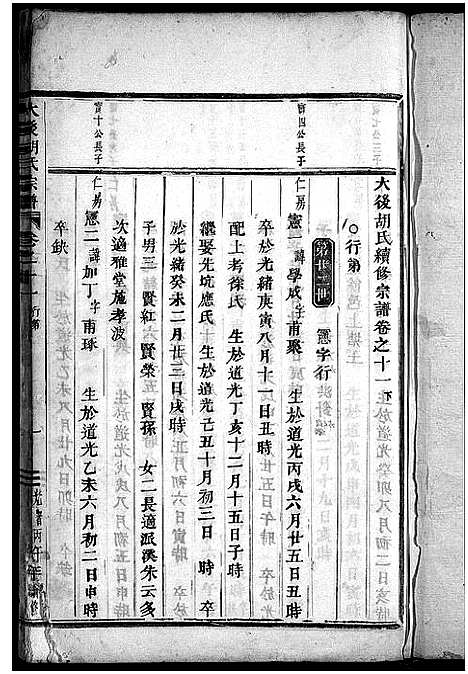 大後胡氏續修宗譜卷之十一下
○行第
第廿二世 憲字行
寅四公長子
仁易 憲一 諱學咸 字甫聚 生於道光丙戌六月廿五日丑時
卒於光緒庚寅八月十日丑時
配上考徐氏 生於道光丁亥十二月十五日子時
繼娶先坑應氏 生於道光己丑十月初三日 時 卒
於光緒癸未二月廿三日戌時
子男三 賢紅 賢榮 賢孫 女二長適派溪朱云多
次適雅堂施孝波
寅十公長子
仁易 憲二 諱加丁 字甫琢 生於道光乙未六月初二日申時
卒缺
大後胡氏宗譜 卷之十一 行第 一 光緒丙午年